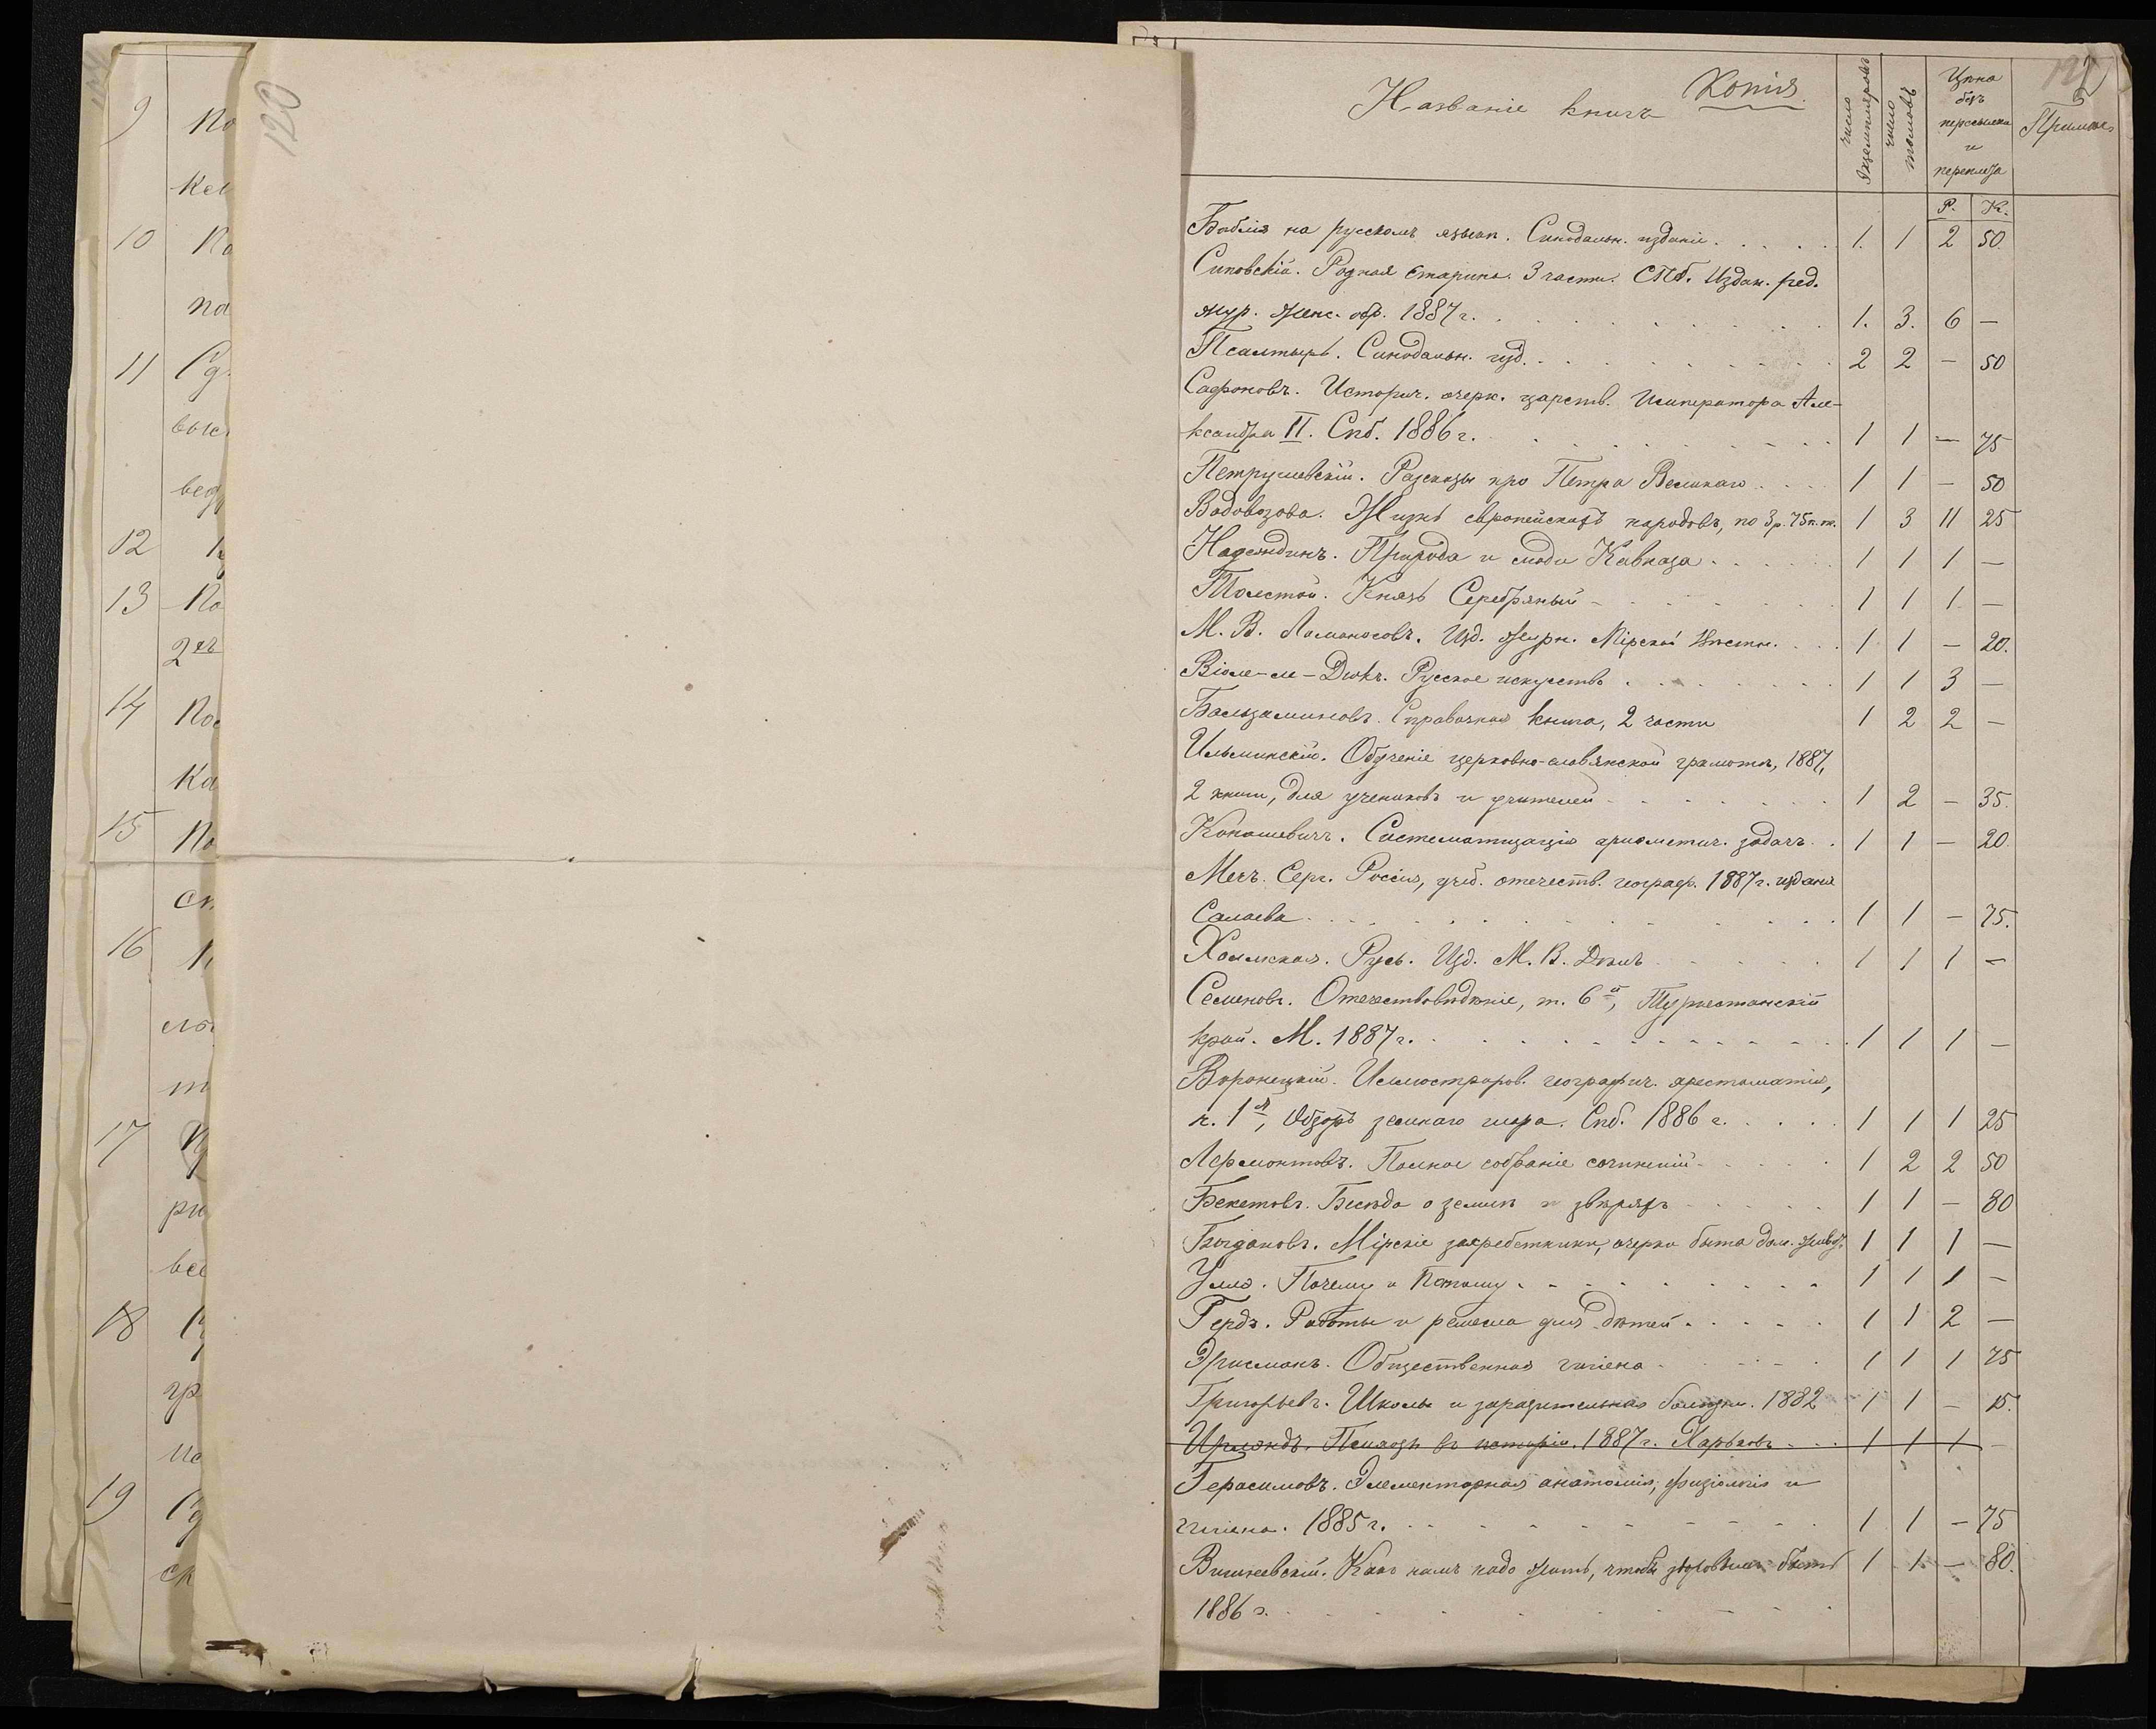 120
9 По
Кел
10 По
па
11 Су
выс
вед
12
13 По
2хъ
14 Пос
Ка
15 По
сп
16
сло
т
17 Пр
ри
все
18
гр
по
19
ск
Названіе книгъ Копія
число экземпляровъ
число томовъ
Цѣна безъ пересылки и переплета
Примѣч.
Р. К.
Библія на русскомъ языкѣ. Синодальн. изданіе. 1. 1 2 50.
Сиповскій. Родная Старина. 3 части. СПб. Издан. ред.
жур. Женс. обр. 1887 г. 1. 3. 6 —
Псалтырь. Синодальн. изд. 2 2 — 50
Сафоновъ. Историч. очерк. царств. Императора Але-
ксандра II. Спб. 1886 г. 1 1 — 75
Петрушевскій. Разсказы про Петра Великаго 1 1 — 50
Водовозова. Жизнь европейскихъ народовъ, по 3 р. 75 к. т. 1 3 11 25
Надеждинъ. Природа и люди Кавказа 1 1 1 —
Толстой. Князь Серебряный 1 1 1 —
М. В. Ломоносовъ. Изд. журн. Мірской Вѣстн. 1 1 — 20.
Віоле-ле-Дюкъ. Русское искусство 1 1 3 —
Бальзаминовъ. Справочная книга, 2 части 1 2 2 —
Ильминскій. Обученіе церковно-славянской грамотѣ, 1887,
2 книги, для учениковъ и учителей 1 2 — 35.
Конашевичъ. Систематизація ариөметич. задачъ. 1 1 — 20.
Мечъ. Серг. Россія, учеб. отечеств. географ. 1887 г. издание
Салаева 1 1 — 75.
Холмская. Русь. Изд. М. В. Дѣлъ 1 1 1 —
Семеновъ. Отечествовѣдѣніе, т. 6й, Туркестанскій
край. М. 1887 г. 1 1 1 —
Воронецкій. Иллюстриров. географич. хрестоматія,
ч. 1я, Обзоръ земнаго шара. Спб. 1886 г. 1 1 1 25
Лермонтовъ. Полное собраніе сочиненій 1 2 2 50
Бекетовъ. Бесѣда о землѣ и звѣряхъ 1 1 — 80
Богдановъ. Мірскіе захребетники, очерки быта дом. живот. 1 1 1 —
Улло. Почему и Потому 1 1 1 —
Гердъ. Работы и ремесла для дѣтей 1 1 2 —
Эрисманъ. Общественная гигіена 1 1 1 75
Григорьевъ. Школы и заразительныя болѣзни. 1882 1 1 — 15.
въ исторіи. 1887 г. Харьковъ 1 1 1 —
Герасимовъ. Элементарная анатомія, физіологія и
гигіена. 1885 г. 1 1 — 75
Вишневскій. Какъ намъ надо жить, чтобы здоровымъ быть 1 1 — 80.
1886 г.